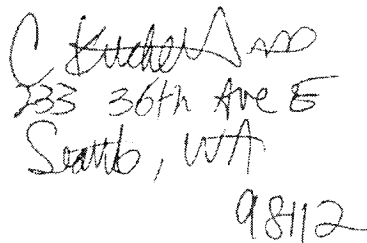 C
233 36th Ave E
Seattle, WA
98112